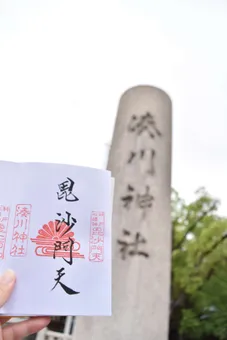 湊川神社
毘沙門天
湊川神社